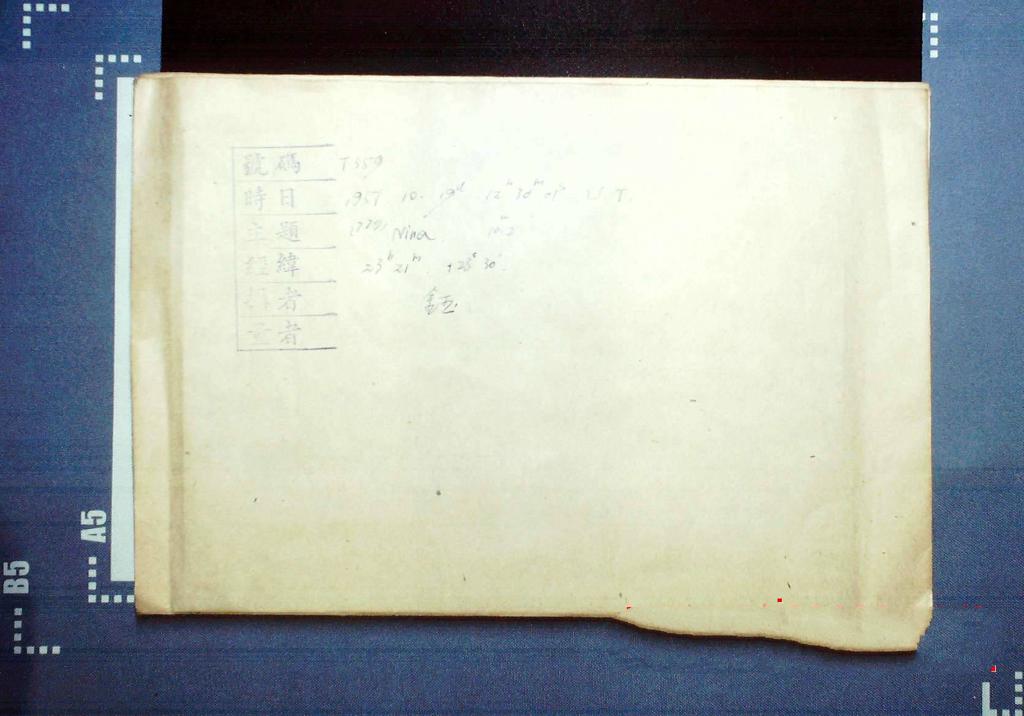 號碼 T559
時日 1957 10. 19d 12h 30m 01s U T.
主題 (779) Nina 10m.2
經緯 23h 21m +23° 30'
攝者
量者
A5
B5